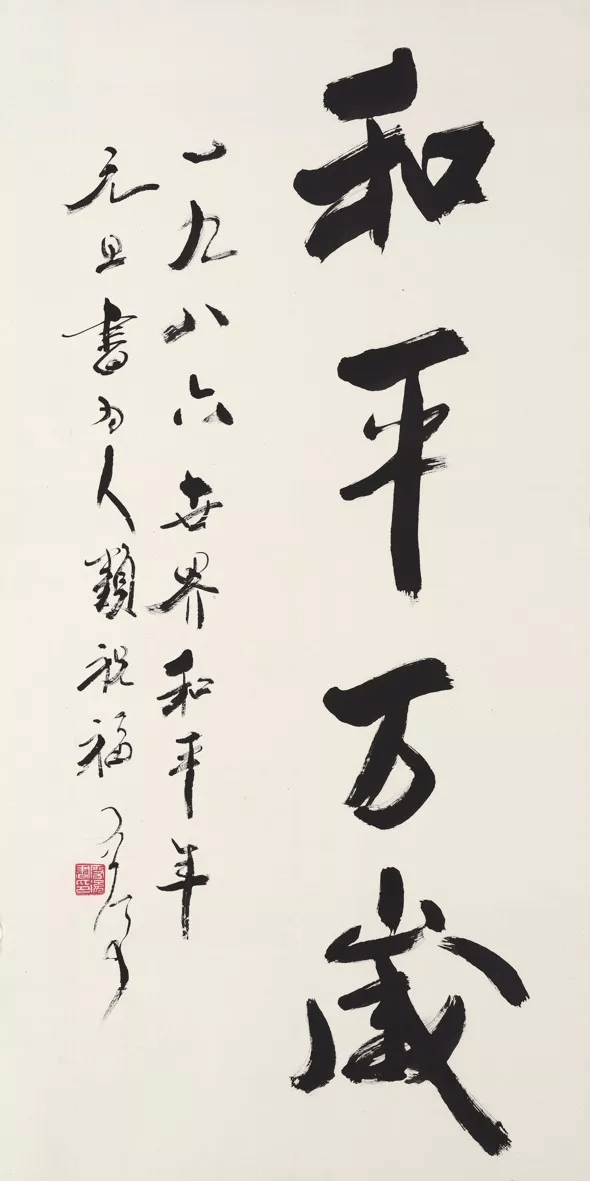 和平万歲
一九八六世界和平年
元旦書为人類祝福